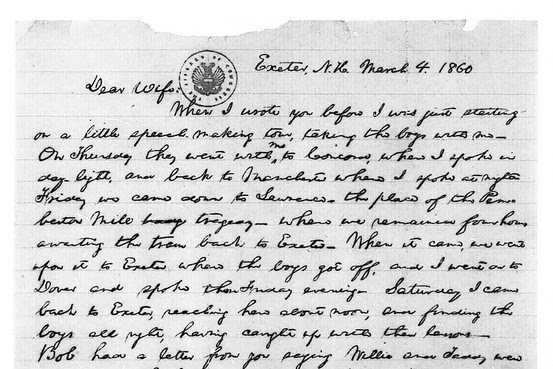 THE LIBRARY OF CONGRESS
Exeter, N.H. March 4. 1860
Dear Wife:
When I wrote you before I was just starting
on a little speech-making tour, taking the boys with me—
On Thursday they went with me to Concord, where I spoke in
day-light, and back to Manchester where I spoke at night.
Friday we came down to Lawrence—the place of the Pem-
berton Mill tragedy—where we remained four hours
awaiting the train back to Exeter—When it came, we went
upon it to Exeter where the boys got off, and I went on to
Dover and spoke there Friday evening—Saturday I came
back to Exeter, reaching here about noon, and finding the
boys all right, having caught up with their lessons—
Bob had a letter from you saying Willie and Taddy were